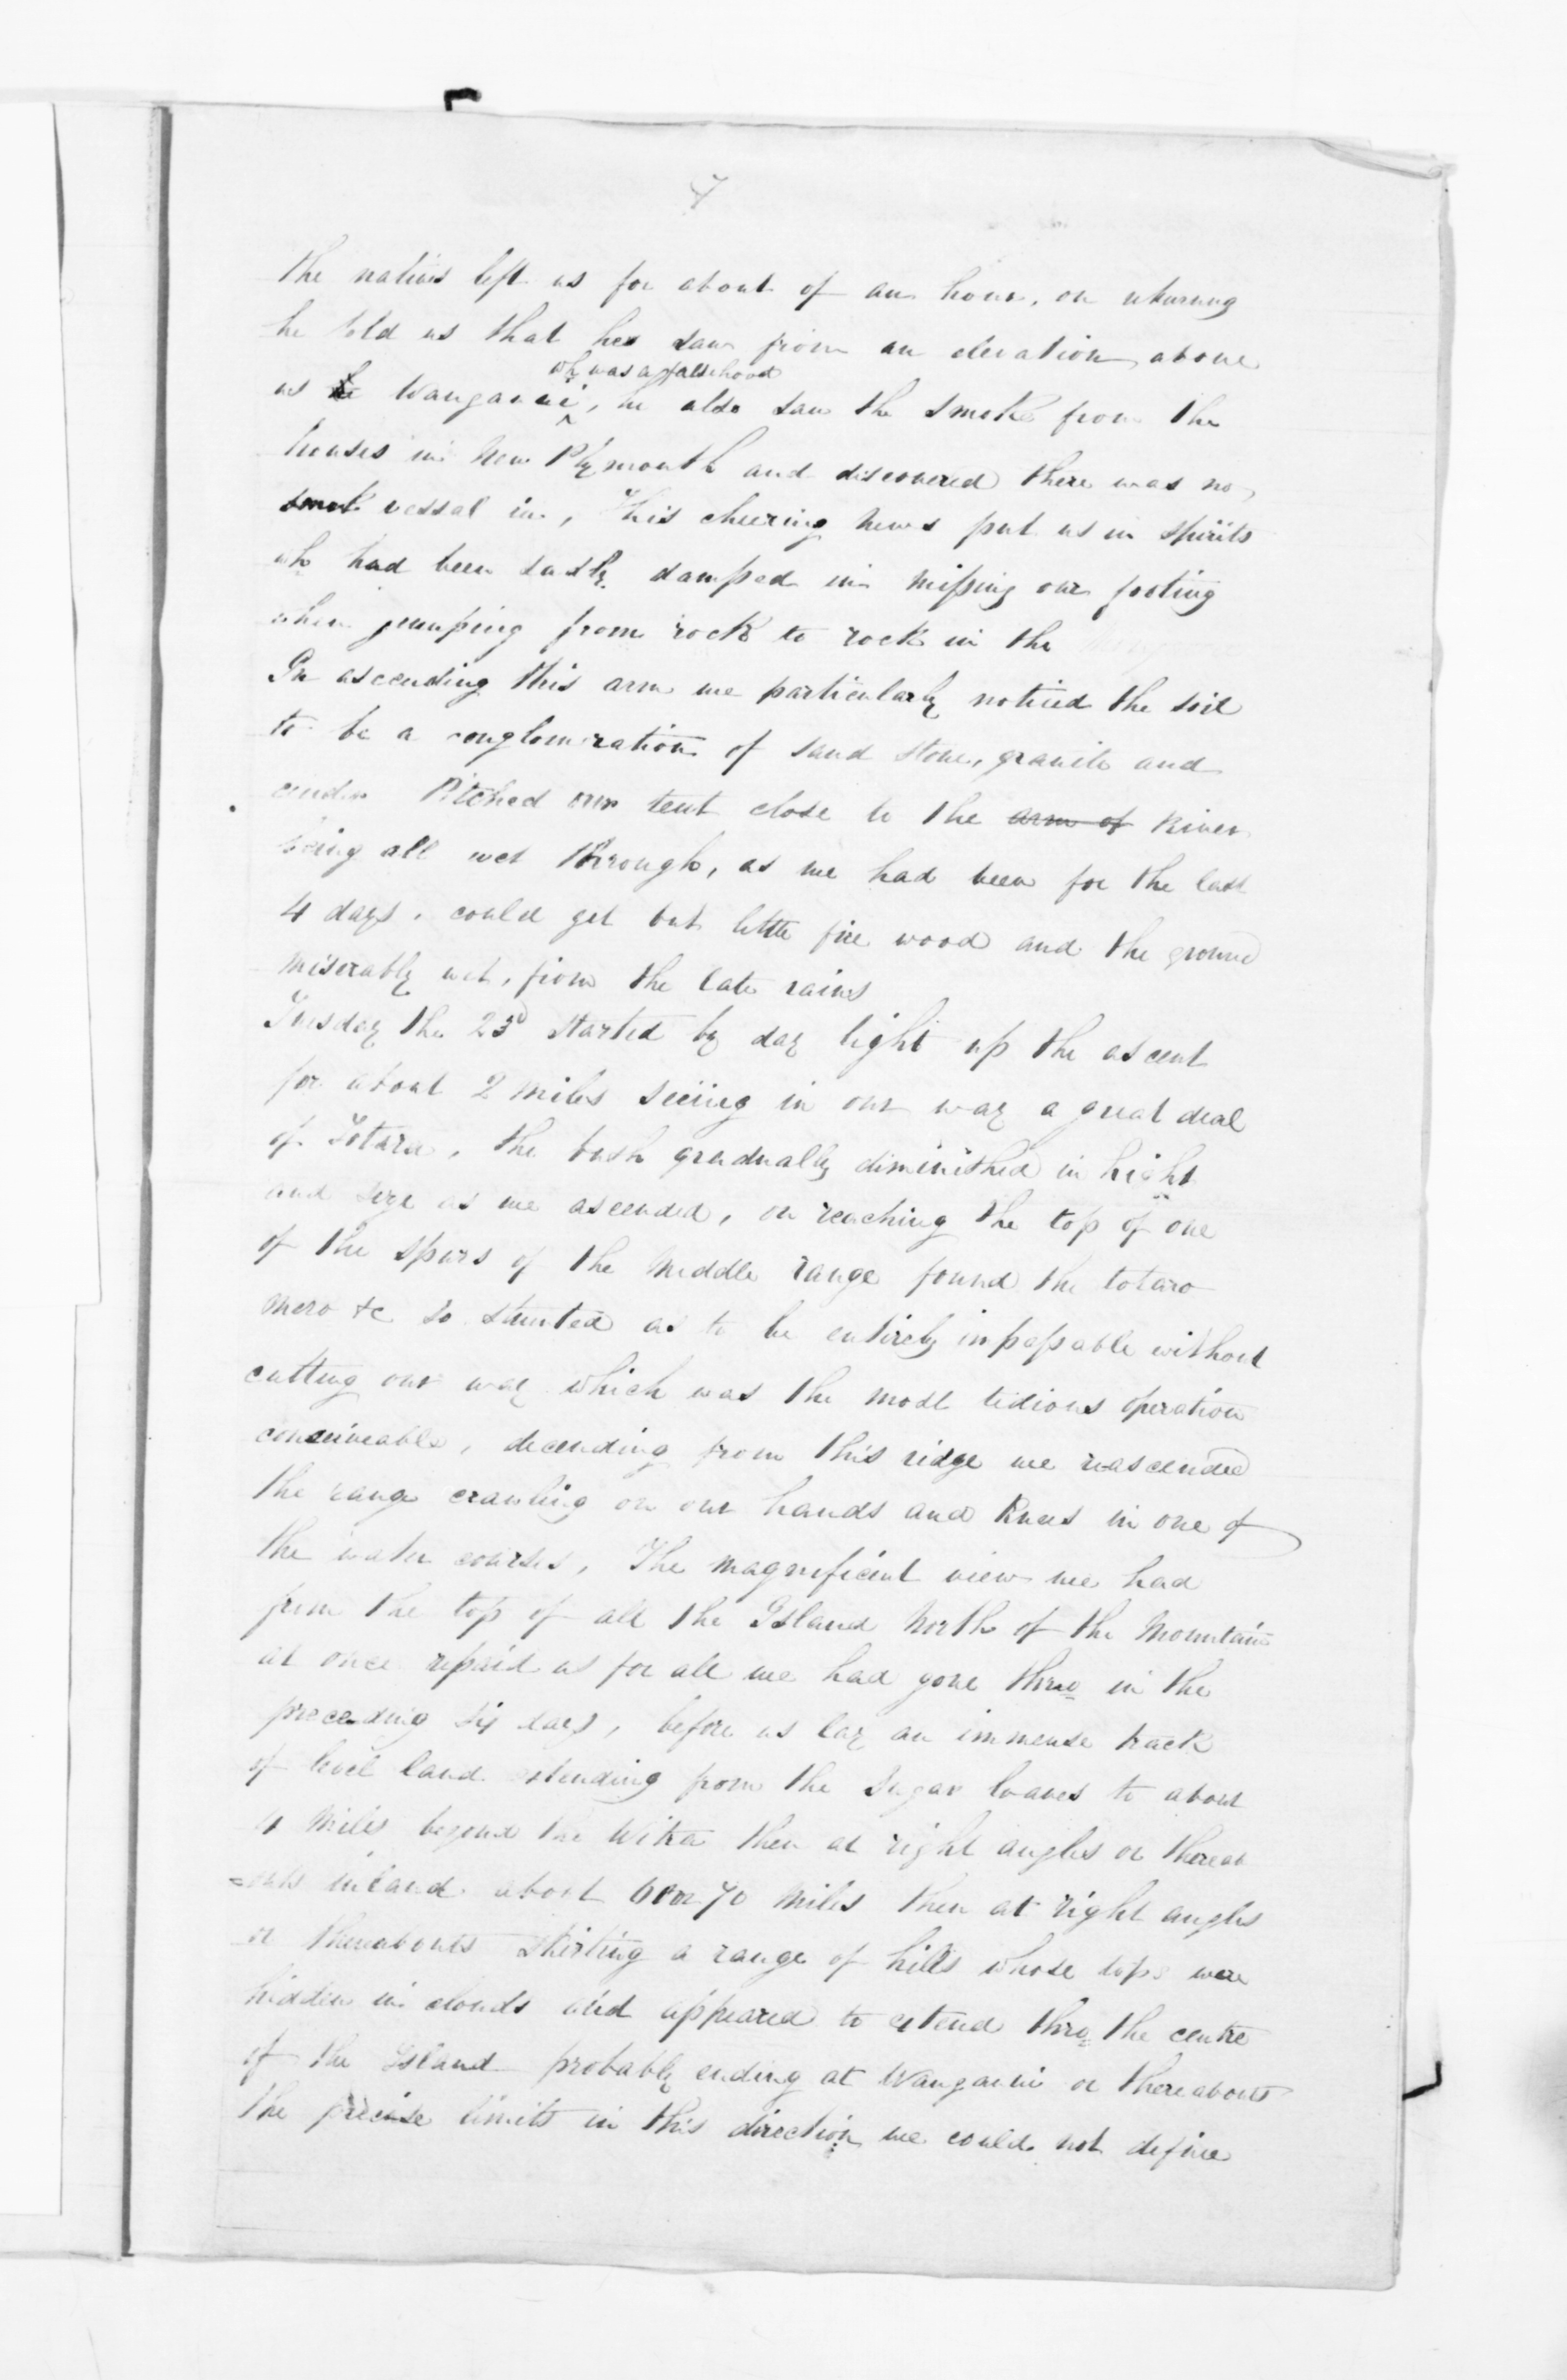 7
the natives left us for about of an hour, on returning
he told us that he saw from an elevation above
wh was a falsehood
us Wanganui, he also saw the smoke from the
houses in New Plymouth and discovered there was no
smok vessal in, This cheering news put us in spirits
wh had been sadly damped in missing our footing
when jumping from rock to rock in the
In ascending this arm we particularly noticed the soil
to be a conglomeration of sand stone, granite and
cinder Pitched our tent close to the arm of River
being all wet through, as we had been for the last
4 days, could get but little fire wood and the ground
miserably wet, from the late rains
Tuesday the 23d started by day light up the ascent
for about 2 miles seeing in our way a great deal
of Totara, the bush gradually diminished in hight
and size as we ascended, on reaching the top of one
of the spurs of the middle range found the totaro
mero &c so stunted as to be entirely inpassable without
cutting our way which was the most tidious operation
conseiveable, decending from this ridge we reascended
the range crawling on our hands and knees in one of
the water courses, The magnificent view we had
from the top of all the Island North of the Mountain
at once repaid us for all we had gone thro in the
preceeding six days, before us lay an immense track
of level land extending from the Sugar loaves to about
4 miles beyond the Witra then at right angles or thereab
=outs inland about 60 or 70 miles then at right angles
or thereabouts skirting a range of hills whose tops were
hidden in clouds and appeared to extend thro the centre
of the Island probably ending at Wanganui or thereabouts
the precise limits in this direction we could not define